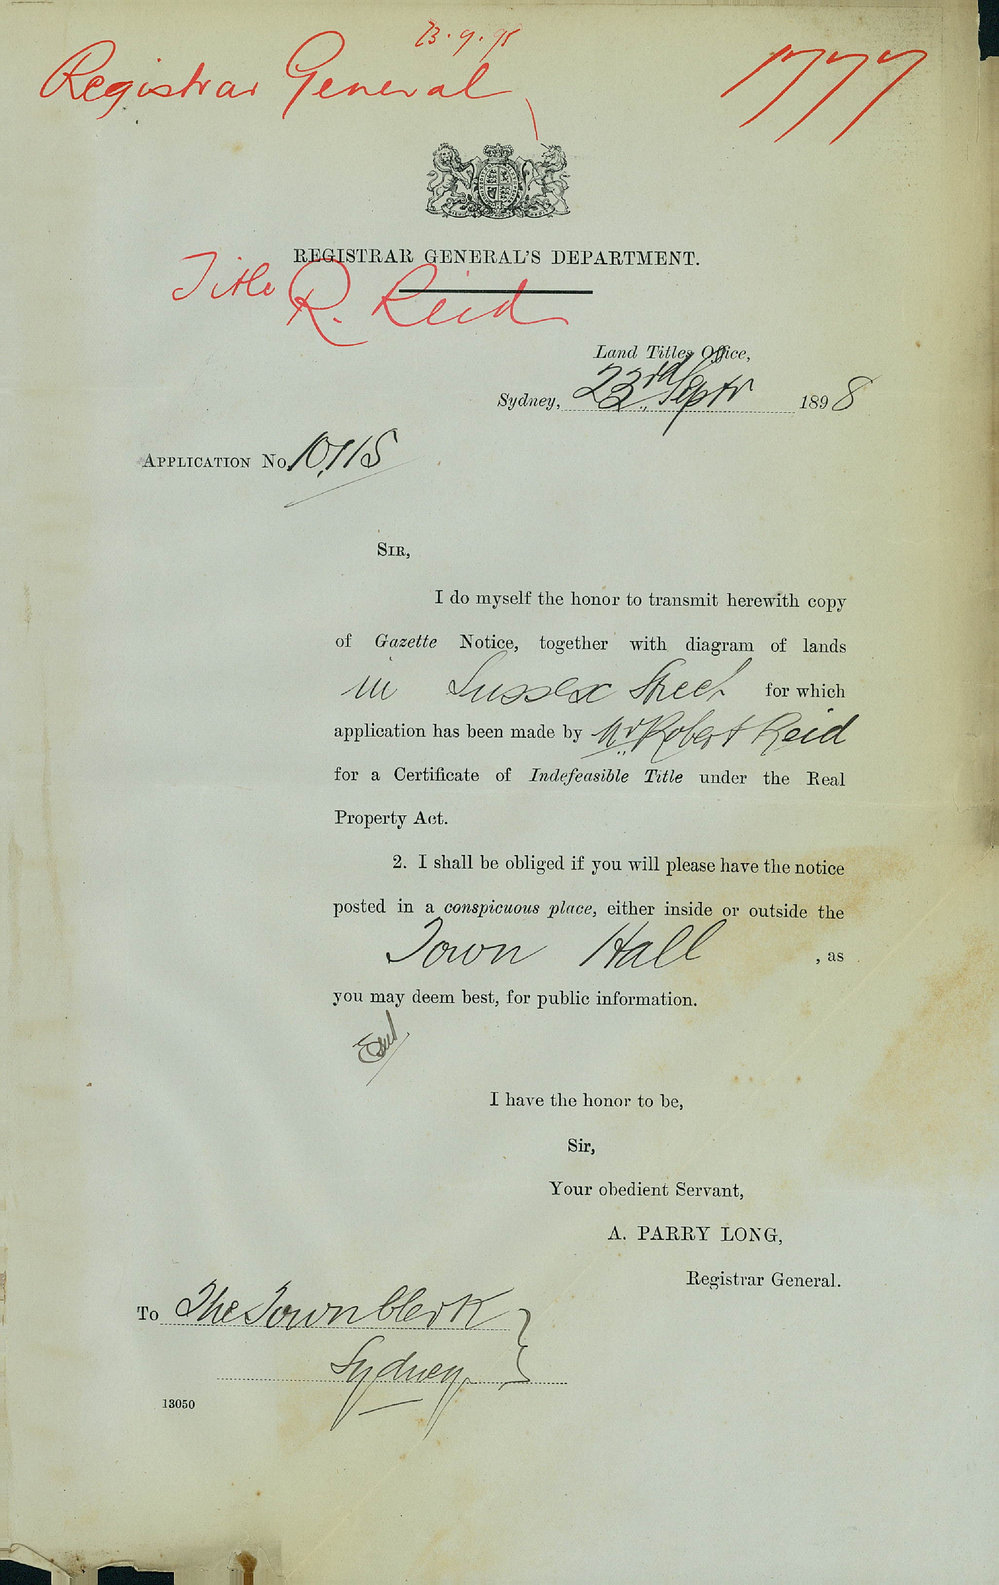 23.9.98
Registrar General
1777
REGISTRAR GENERAL'S DEPARTMENT.
Title R. Reid
Land Titles Office,
Sydney, 23rd Septr 1898
APPLICATION No. 10,115
SIR,
I do myself the honor to transmit herewith copy
of Gazette Notice, together with diagram of lands
in Sussex Street for which
application has been made by Mr Robert Reid
for a Certificate of Indefeasible Title under the Real
Property Act.
2. I shall be obliged if you will please have the notice
posted in a conspicuous place, either inside or outside the
Town Hall , as
you may deem best, for public information.
I have the honor to be,
Sir,
Your obedient Servant,
A. PARRY LONG,
Registrar General.
To The Town Clerk
Sydney.
13050